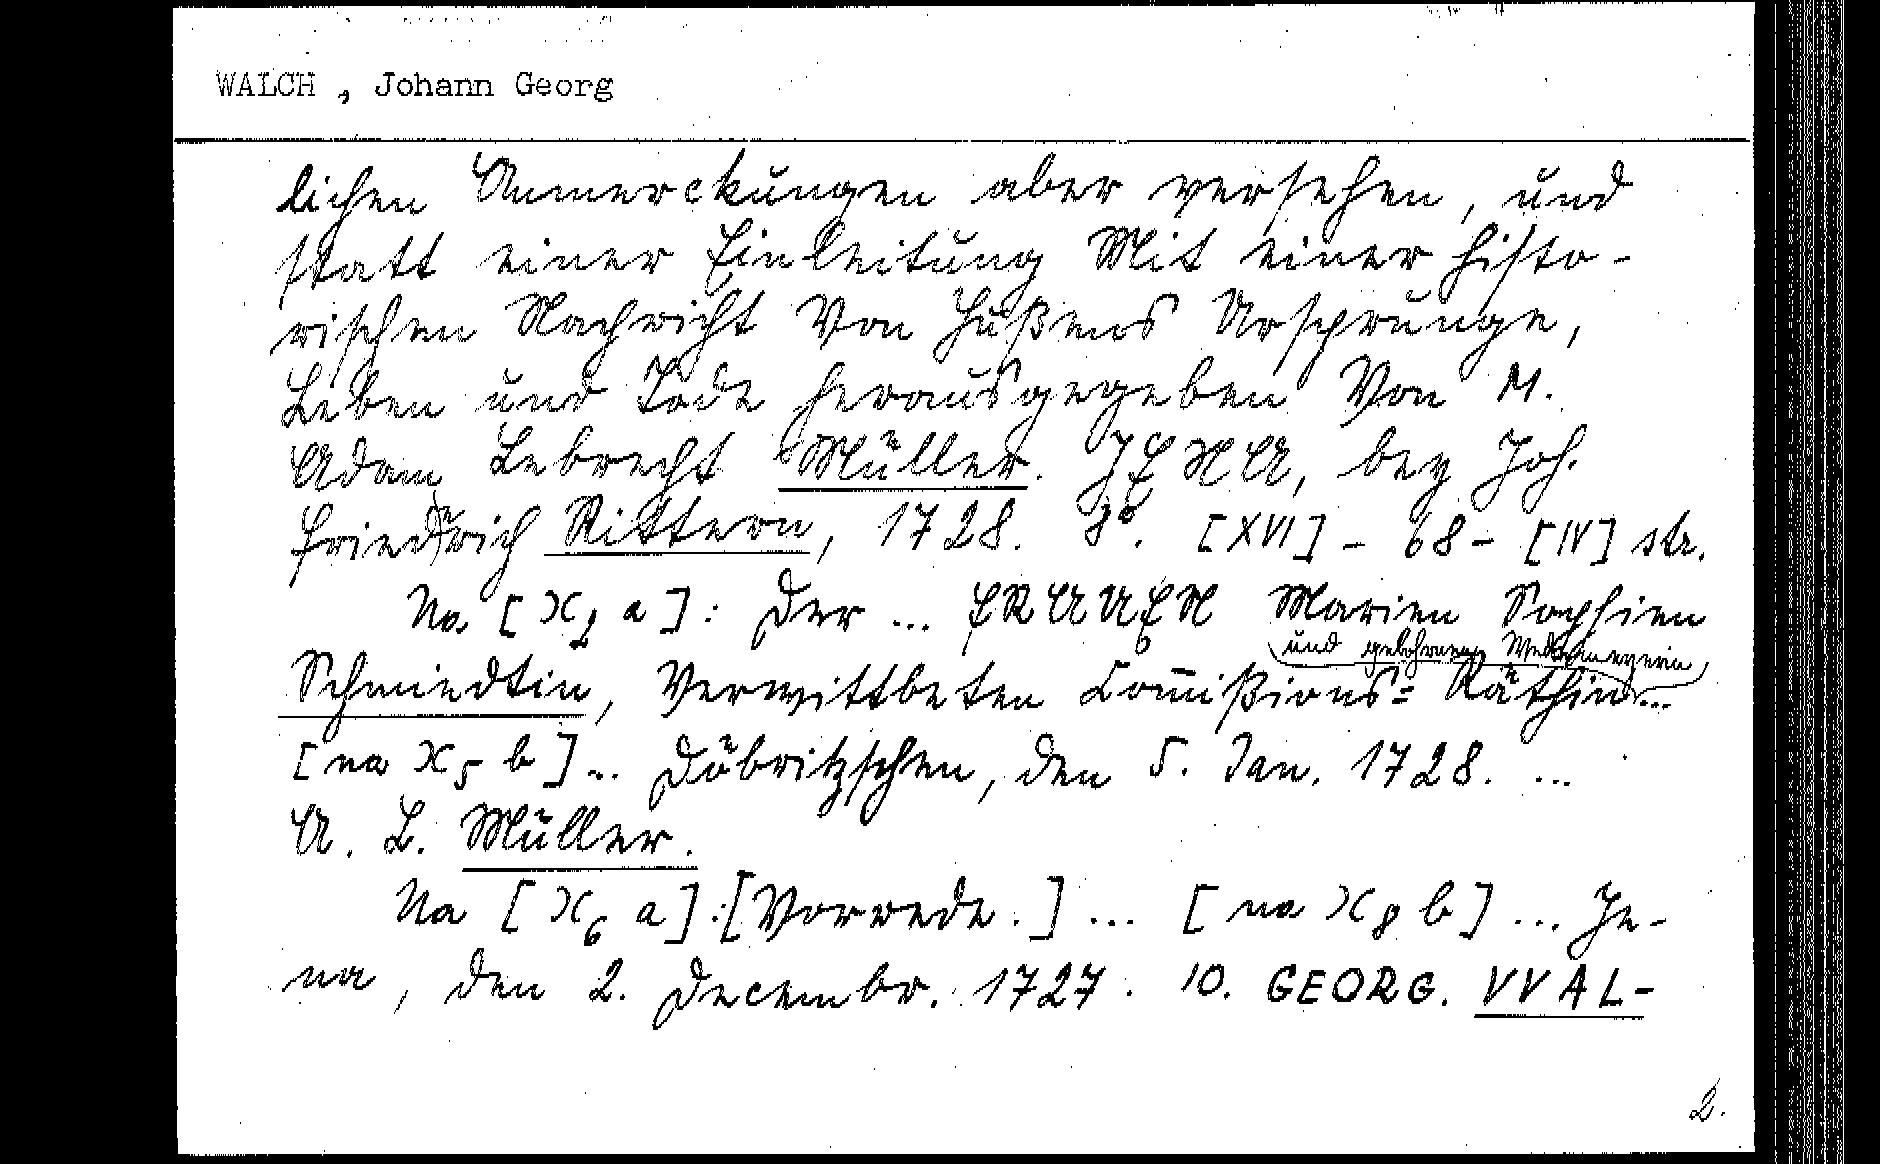 WALCH, Johann Georg
lichen Anmerckungen aber versehen, und
statt einer Einleitung Mit einer histo-
rischen Nachricht Von Hußens Ursprunge,
Leben und Tode herausgegeben Von M.
Adam Lebrecht Müller. JENA, bey Joh.
Friedrich Rittern, 1728. 8°. [XVI] - 68 - [IV] str.
Na [X2 a]: Der ... FRAUEN Marien Sophien
und gebohrnen
Schmiedtin, Verwittbeten Com̅ißions= Räthin ...
[na X5 b] ... Döbritzschen, den 5. Jan. 1728. ...
A. L. Müller.
Na [X6 a]: [Vorrede.] ... [na X8 b] ... Je-
na, den 2. Decembr. 1727. IO. GEORG. VVAL-
2.